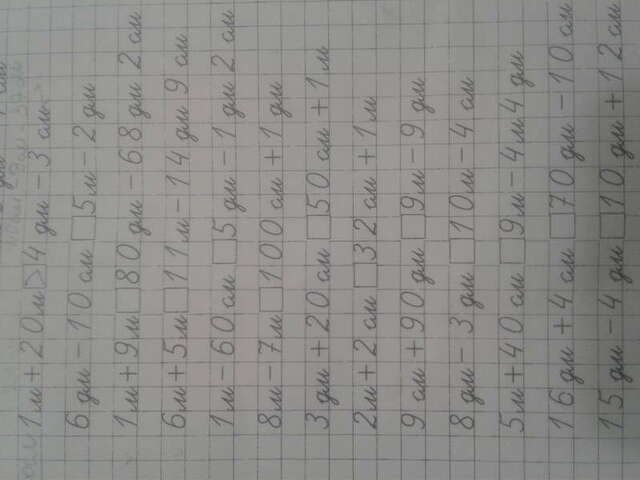 1м + 20м > 4 дм - 3 см
6 дм - 10 см □ 5м - 2 дм
1м + 9м □ 80 дм - 68 дм 2 см
6м + 5м □ 11м - 14 дм 9 см
1м - 60 см □ 5 дм - 1 дм 2 см
8м - 7м □ 100 см + 1 дм
3 дм + 20 см □ 50 см + 1м
2м + 2 см □ 32 см + 1м
9 см + 90 дм □ 9м - 9 дм
8 дм - 3 дм □ 10м - 4 см
5м + 40 см □ 9м - 4м 4 дм
16 дм + 4 см □ 70 дм - 10 см
15 дм - 4 дм □ 10 дм + 12 см